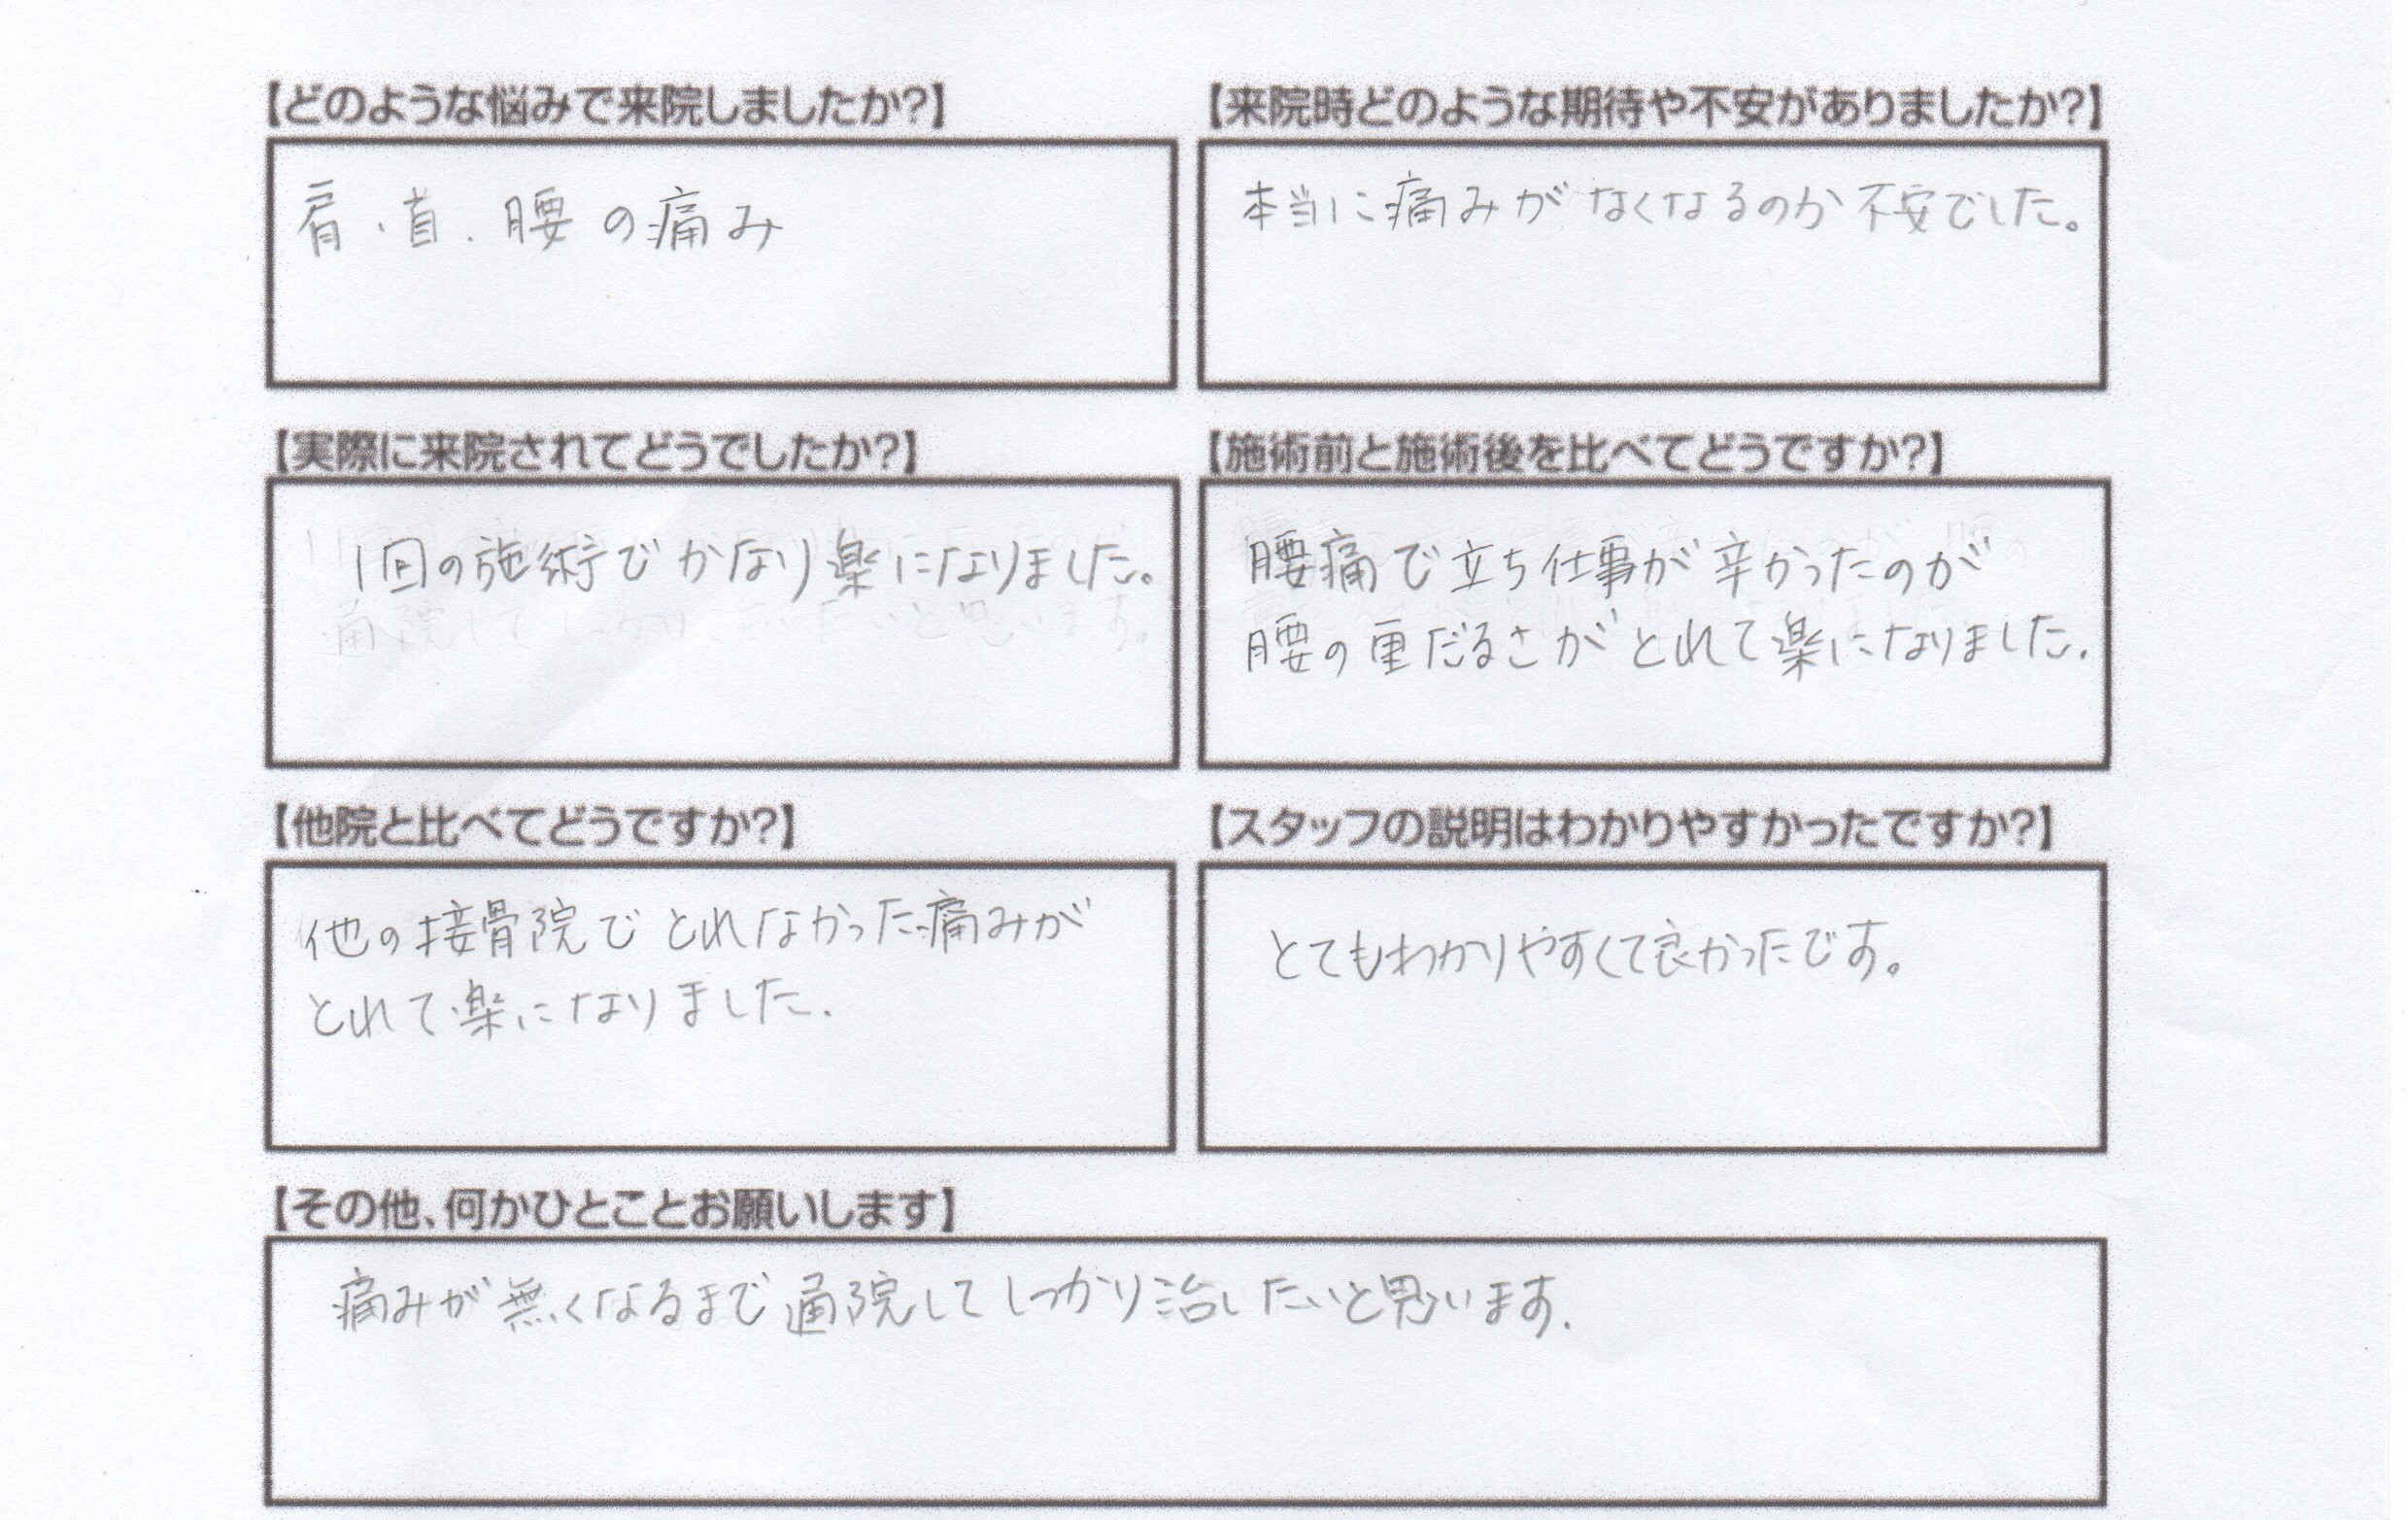 【どのような悩みで来院しましたか?】
肩・首・腰の痛み
【来院時どのような期待や不安がありましたか?】
本当に痛みがなくなるのか不安でした。
【実際に来院されてどうでしたか?】
1回の施術でかなり楽になりました。
【施術前と施術後を比べてどうですか?】
腰痛で立ち仕事が辛かったのが
腰の重だるさがとれて楽になりました.
【他院と比べてどうですか?】
他の接骨院でとれなかった痛みが
とれて楽になりました.
【スタッフの説明はわかりやすかったですか?】
とてもわかりやすくて良かったです。
【その他、何かひとことお願いします】
痛みが無くなるまで通院してしっかり治したいと思います.